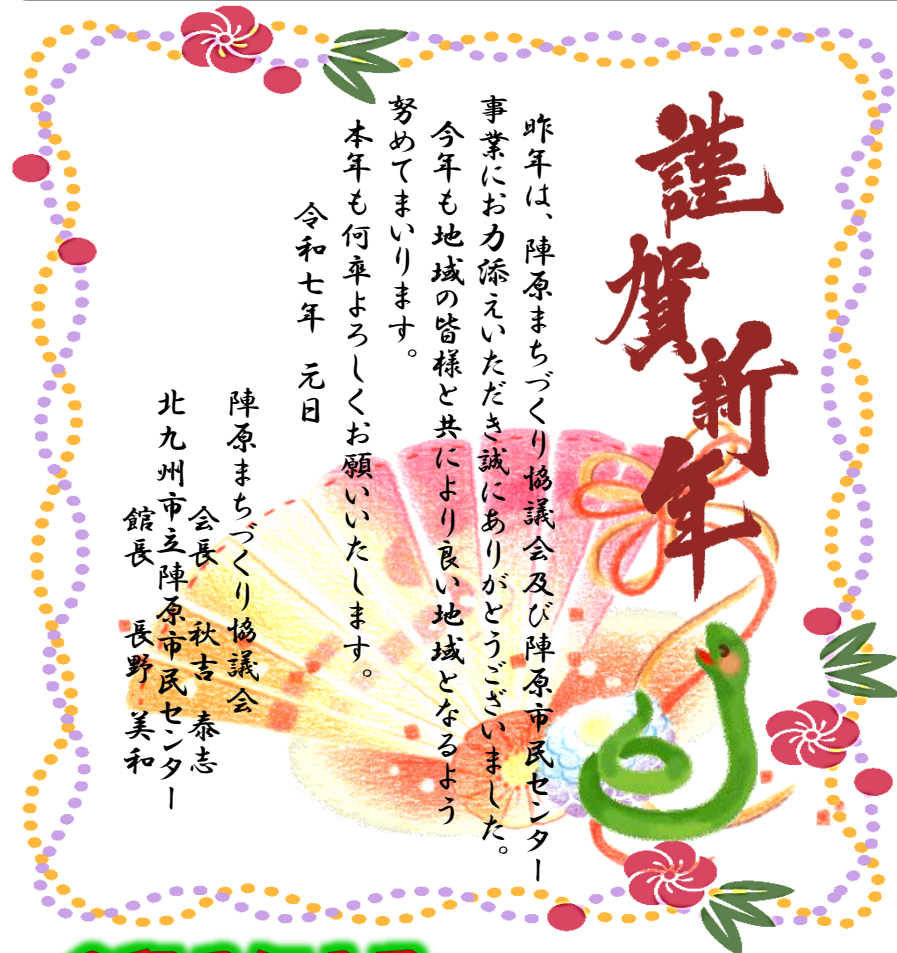 謹賀新年
昨年は、陣原まちづくり協議会及び陣原市民センター
事業にお力添えいただき誠にありがとうございました。
今年も地域の皆様と共により良い地域となるよう
努めてまいります。
本年も何卒よろしくお願いいたします。
令和七年 元日
陣原まちづくり協議会
会長 秋吉 泰志
北九州市立陣原市民センター
館長 長野 美和